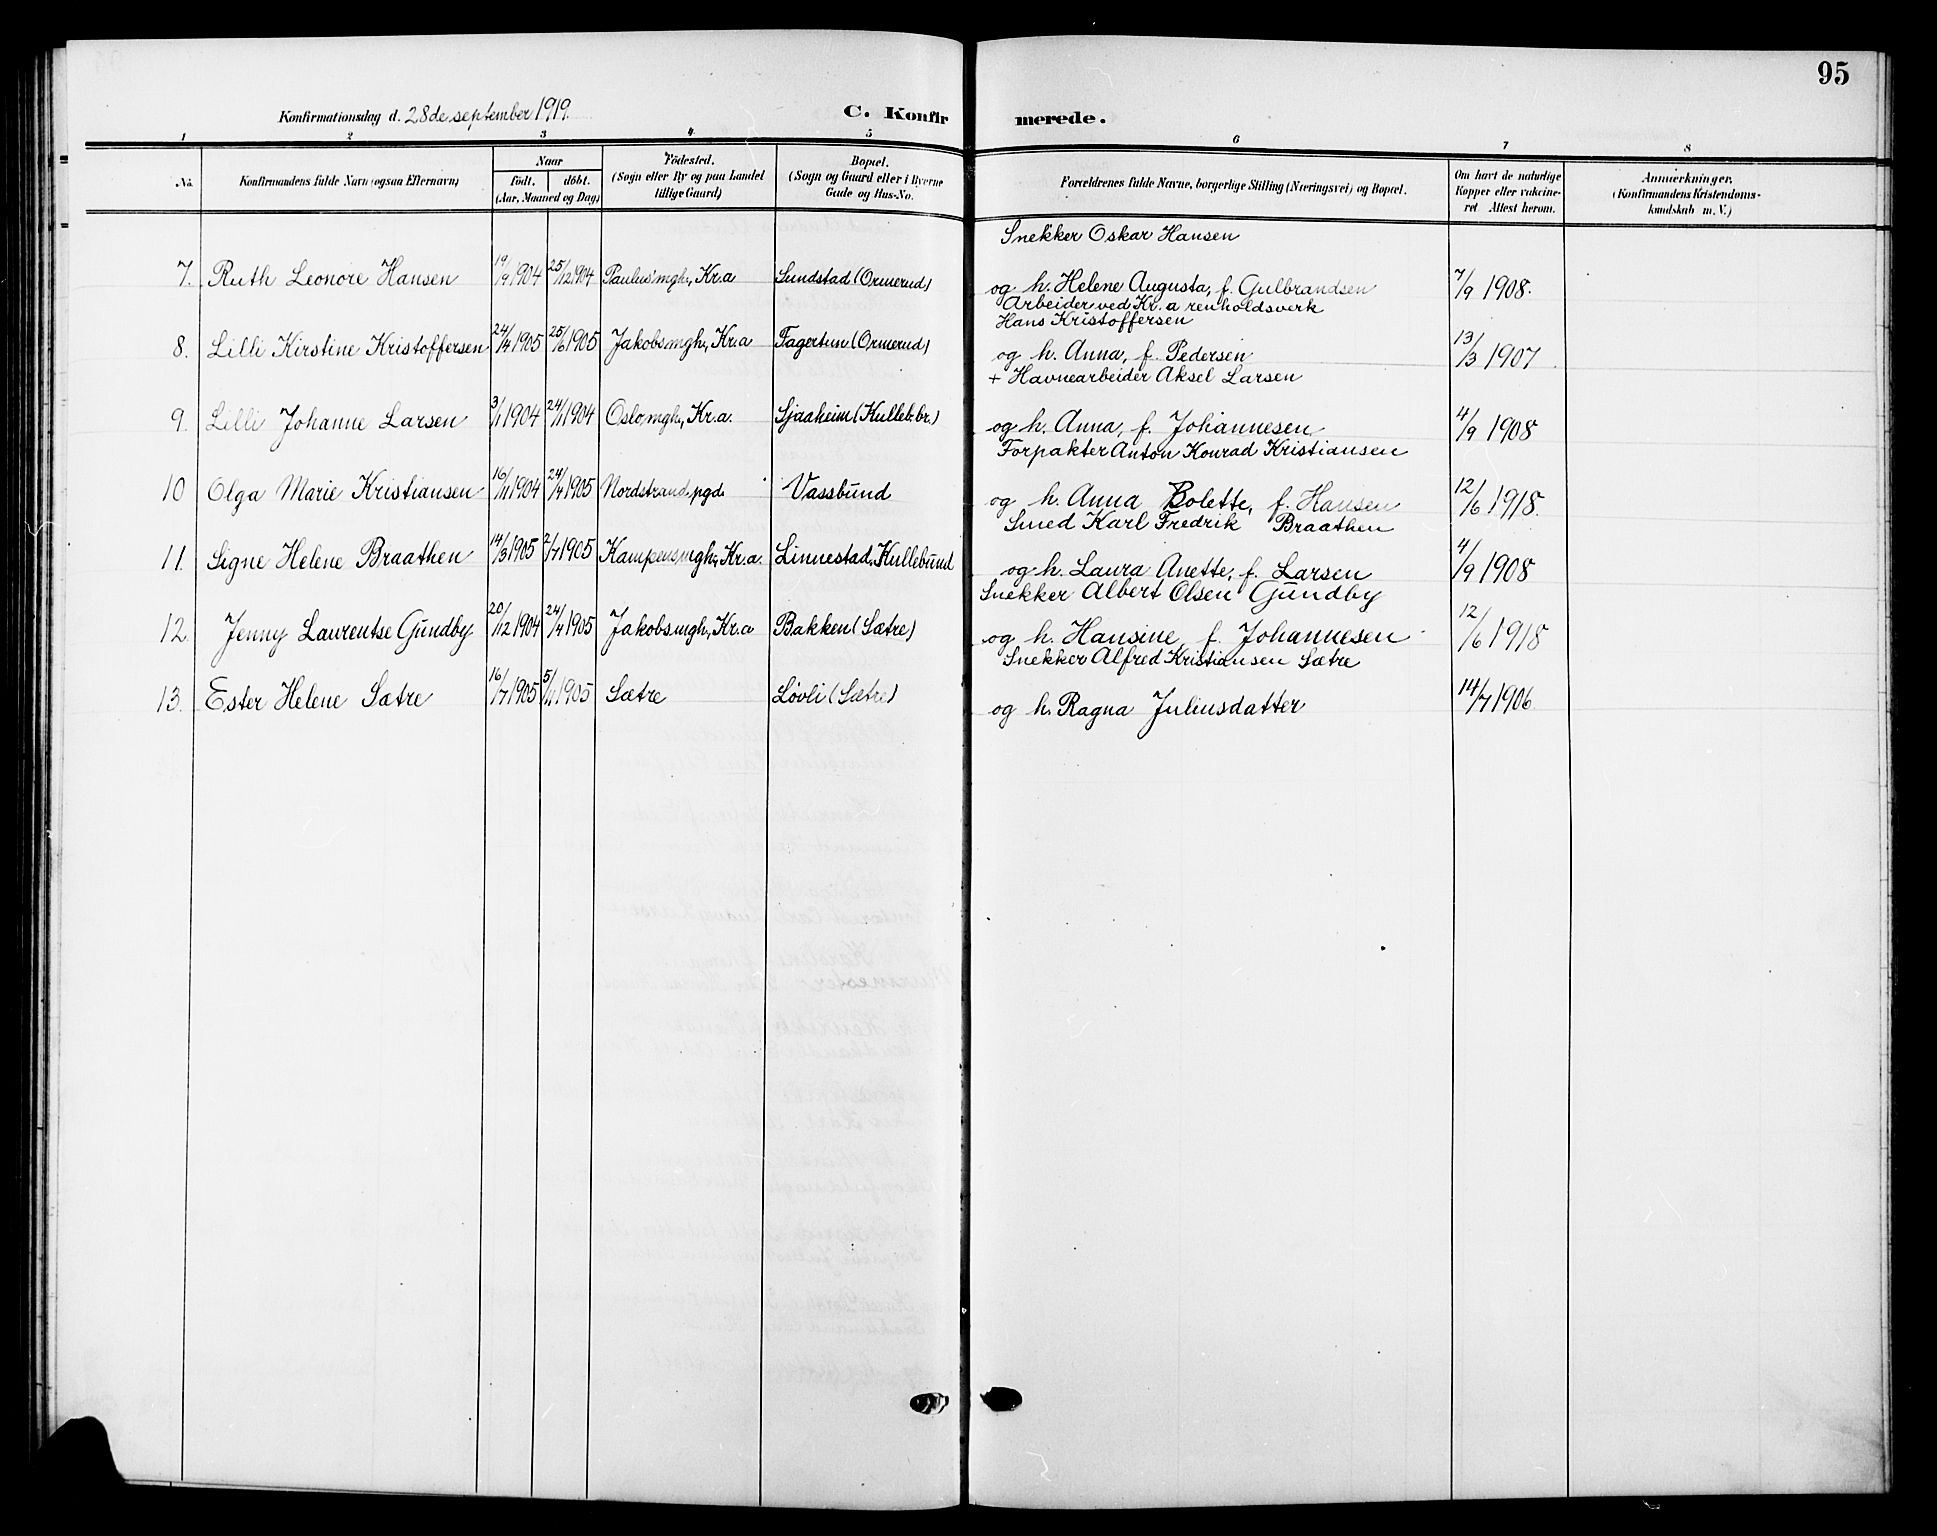 95
Konfirmationsdag d. 28de september 1919.
C. Konfirmerede.
1 2 3 4 5 6 7 8
No. Konfirmandens fulde Navn (ogsaa Efternavn)
Naar
født. døbt.
(Aar, Maaned og Dag)
Fødested.
(Sogn eller By og paa Landet
tillige Gaard)
Bopæl.
(Sogn og Gaard eller i Byerne
Gade og Hus-No.
Forældrenes fulde Navne, borgerlige Stilling (Næringsvei) og Bopæl.
Om havt de naturlige
Kopper eller vakcine-
ret. Attest herom.
Anmærkninger,
(Konfirmandens Kristendoms-
kundskab m. V.)
Snekker Oskar Hansen
7. Ruth Leonore Hansen 19/9 1904 25/12 1904 Paulus mgh., Kr.a Sundstad (Ormerud) og h. Helene Augusta, f. Gulbrandsen 7/9 1908.
Arbeider ved Kr.a renholdsverk
Hans Kristoffersen
8. Lilli Kirstine Kristoffersen 24/4 1905 25/6 1905 Jakobs mgh., Kr.a Fagertun (Ormerud) og h. Anna, f. Pedersen 13/3 1907
+ Havnearbeider Aksel Larsen
9. Lilli Johanne Larsen 3/1 1904 24/1 1904 Oslo, mgh., Kr.a. Sjaaheim (Kulleb.br.) og h. Anna, f. Johannesen 4/9 1908
Forpakter Anton Konrad Kristiansen
10 Olga Marie Kristiansen 16/11 1904 24/4 1905 Nordstrand, pgd. Vassbund og h. Anna Bolette, f. Hansen 12/6 1918.
Smed Karl Fredrik Braathen
11. Signe Helene Braathen 14/3 1905 2/7 1905 Kampens mgh., Kr.a. Linnestad, Kullebund og h. Laura Anette, f. Larsen 4/9 1908
Snekker Albert Olsen Gundby
12. Jenny Laurentse Gundby 20/12 1904 24/4 1905 Jakobs mgh, Kr.a Bakken (Sætre) og h. Hansine, f. Johannesen 12/6 1918
Snekker Alfred Kristiansen Sætre
13. Ester Helene Sætre 16/7 1905 5/11 1905 Sætre Løvli (Sætre) og h. Ragna Juliusdatter 14/7 1906